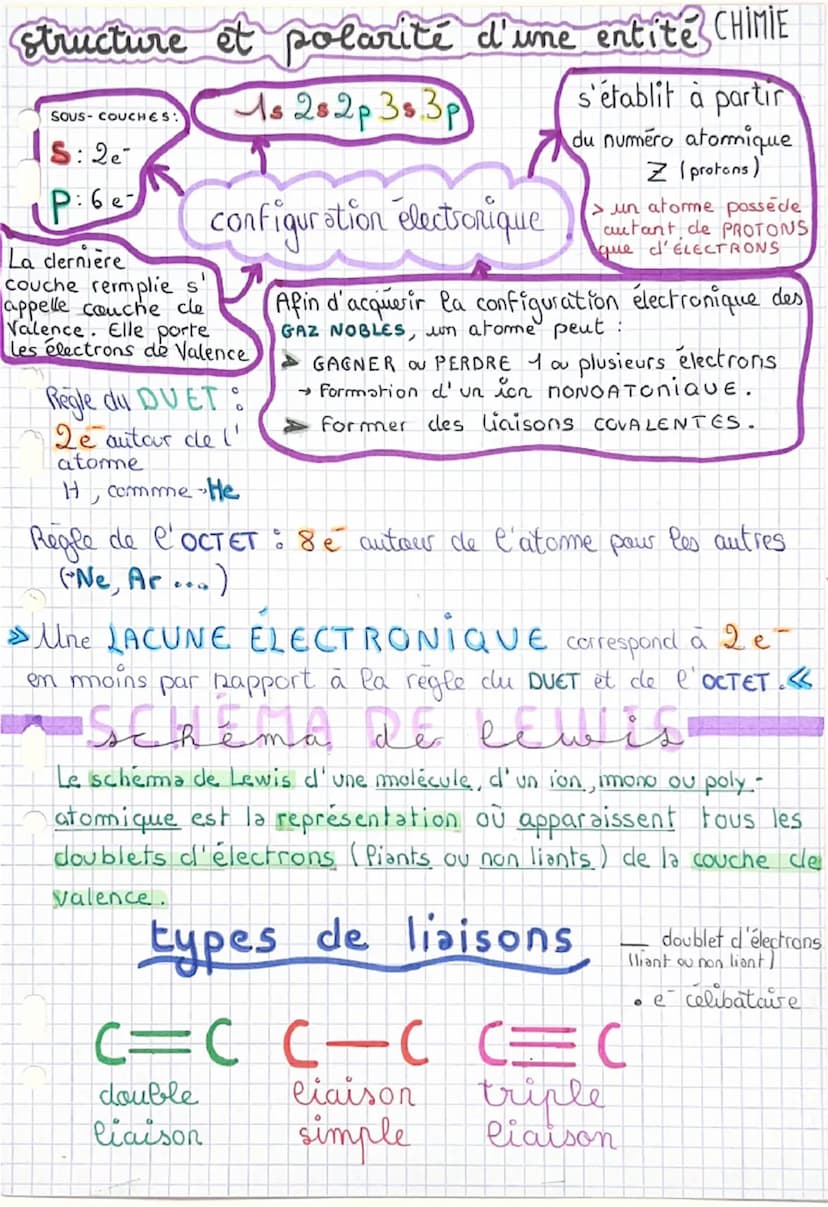 structure et polarité d'une entité CHIMIE
SOUS-COUCHES:
S: 2e⁻
P: 6e⁻
1s 2s 2p 3s 3p
s'établit à partir
du numéro atomique
Z (protons)
> un atome possède
autant de PROTONS
que d'ÉLECTRONS
configuration électronique
La dernière
couche remplie s'
appelle couche de
Valence. Elle porte
les électrons de Valence
Afin d'acquérir la configuration électronique des
GAZ NOBLES, un atome peut :
➤ GAGNER ou PERDRE 1 ou plusieurs électrons
→ Formation d'un ion MONOATONIQUE.
➤ Former des liaisons COVALENTES.
Règle du DUET :
2e⁻ autour de l'
atome
H, comme → He
Règle de l'OCTET : 8e⁻ autour de l'atome pour les autres
(→Ne, Ar ....)
» Une LACUNE ÉLECTRONIQUE correspond à 2e⁻
en moins par rapport à la règle du DUET et de l'OCTET. «
SCHÉMA DE LEWIS
schéma de lewis
Le schéma de Lewis d'une molécule, d'un ion, mono ou poly-
atomique est la représentation où apparaissent tous les
doublets d'électrons (liants ou non liants) de la couche de
valence.
types de liaisons
— doublet d'électrons
(liant ou non liant)
• e⁻ célibataire
C=C C—C C≡C
double liaison triple
liaison simple liaison